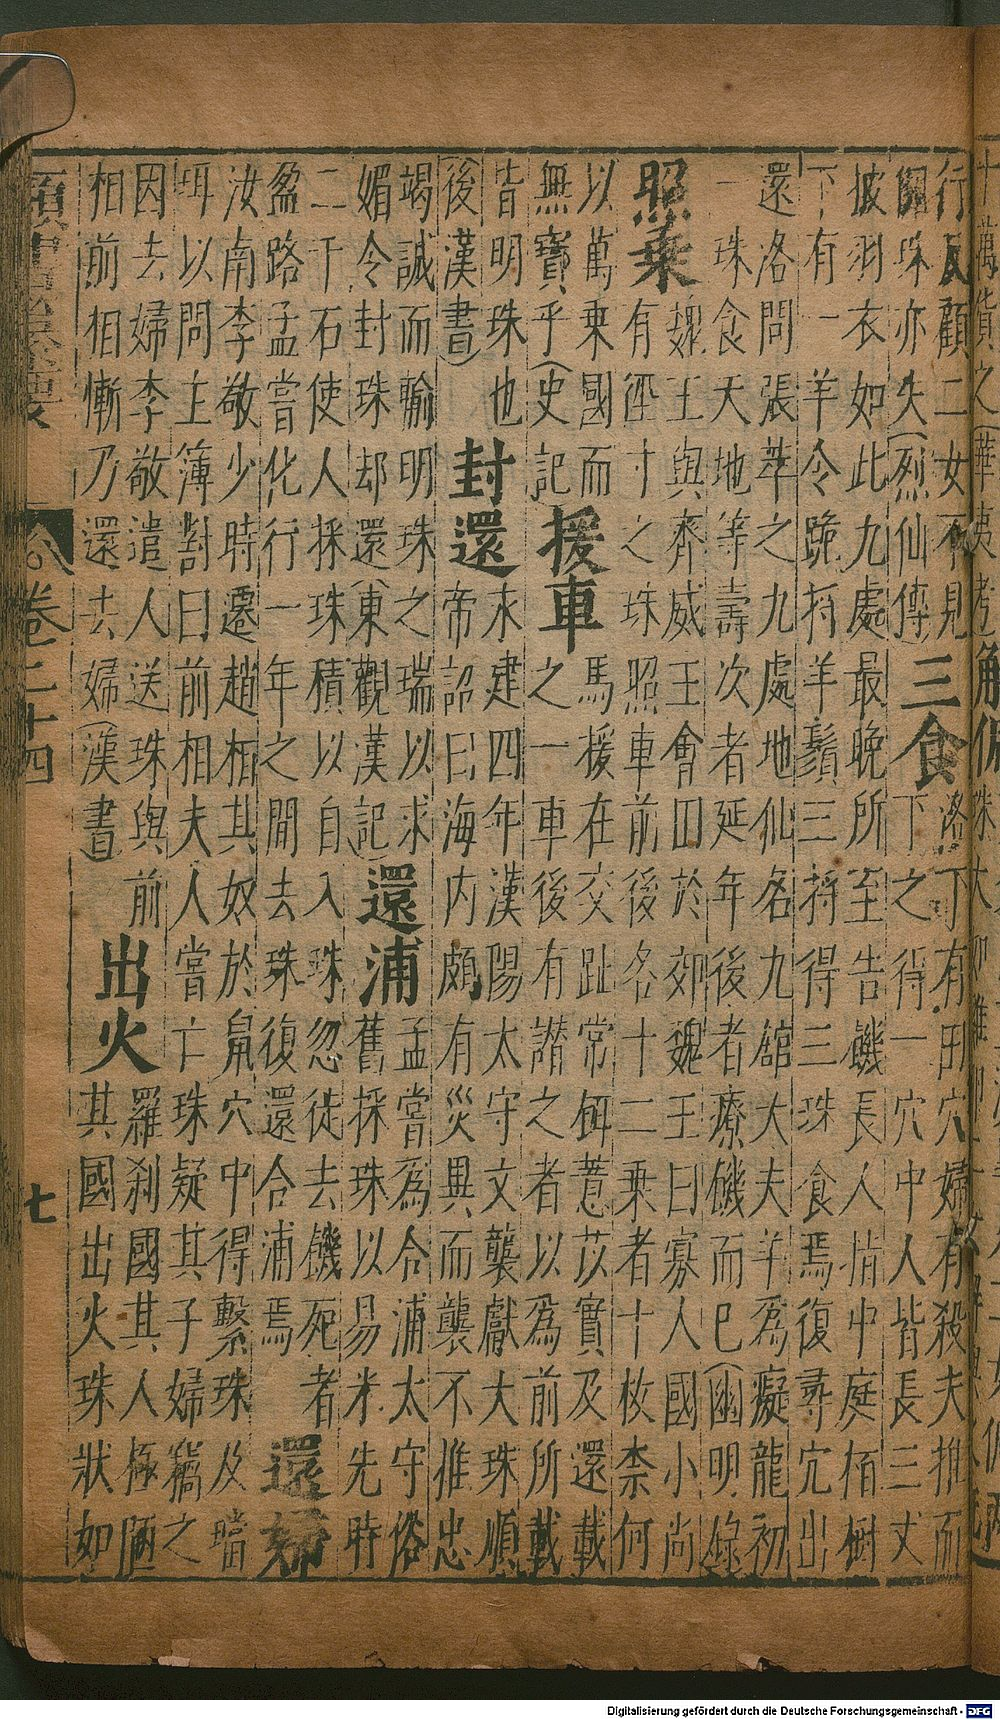 十萬貨之(華夷考)解佩
行反顧二女不見
珠亦失(烈仙傳)
三食
洛下有田穴婦有殺夫推而
下之得一穴中人皆長三丈
披羽衣如此九處最晚所至告磯長人指中庭栢樹
下有一羊令跪捋羊鬚三捋得三珠食焉復尋穴出
還洛問張華之九處地仙名九館大夫羊爲癡龍初
一珠食天地等壽次者延年後者療磯而已(幽明錄
照乗
魏王與齊威王會田於郊魏王曰寡人國小尚
有徑寸之珠照車前後各十二乗者十枚柰何
以萬乗國而
無寶乎(史記)
援車
馬援在交趾常餌薏苡實及還載
之一車後有譛之者以爲前所載
皆明珠也
後漢書)
封還
永建四年漢陽太守文襲獻大珠順
帝詔曰海内頗有災異而襲不推忠
竭誠而輸明珠之瑞以求
媚令封珠却還(東觀漢記)
還浦
孟嘗爲合浦太守俗
舊採珠以易米先時
二千石使人採珠積以自入珠忽徙去饑死者
盈路孟嘗化行一年之間去珠復還合浦焉
還婦
汝南李敬少時遷趙相其奴於鼠穴中得繫珠及璫
珥以問主簿對曰前相夫人嘗亡珠疑其子婦竊之
因去婦李敬遣人送珠與前
相前相慚乃還去婦(漢書)
出火
羅刹國其人極陋
其國出火珠狀如
卷二十四
七
Digitalisierung gefördert durch die Deutsche Forschungsgemeinschaft - DFG